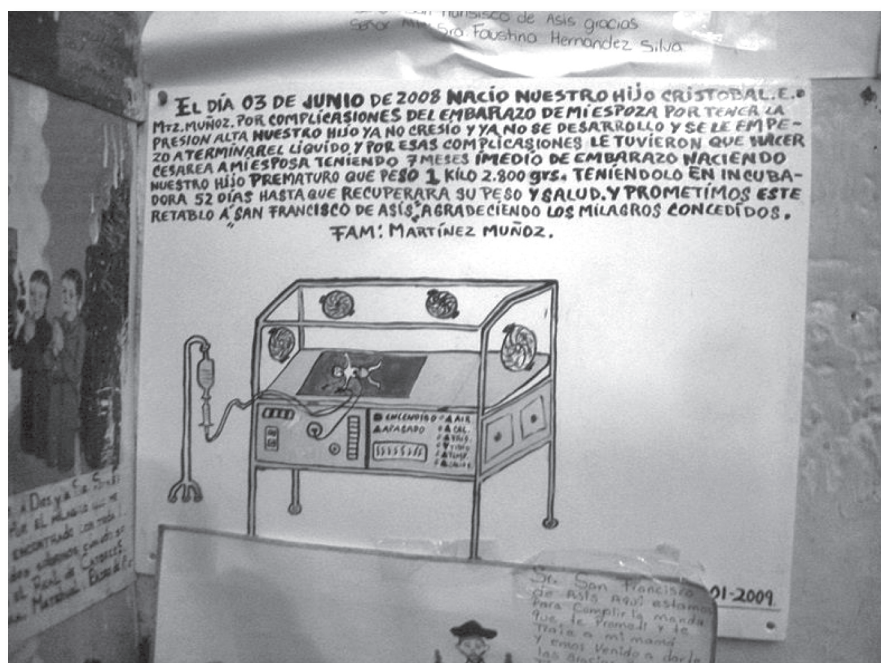 San Fransisco de Asis gracias
Señor
Sra Faustina Hernandez Silva
EL DÍA 03 DE JUNIO DE 2008 NACÍO NUESTRO HIJO CRISTOBAL.E.
MTZ.MUÑOZ.POR COMPLICASIONES DEL EMBARAZO DE MI ESPOZA POR TENER LA
PRESION ALTA NUESTRO HIJO YA NO CRESIO Y YA NO SE DESARROLLO Y SE LE EMPE-
ZO A TERMINAR EL LÍQUIDO, Y POR ESAS COMPLICASIONES LE TUVIERON QUE HACER
CESAREA A MI ESPOSA TENIENDO 7 MESES ÍMEDIO DE EMBARAZO NACIENDO
NUESTRO HIJO PREMATURO QUE PESO 1 KÍLO 2.800 grs. TENIÉNDOLO EN INCUBA-
DORA 52 DÍAS HASTA QUE RECUPERARA SU PESO Y SALUD. Y PROMETÍMOS ESTE
RETABLO A "SAN FRANCISCO DE ASÍS," AGRADECÍENDO LOS MILAGROS CONCEDÍDOS.
FAM: MARTÍNEZ MUÑOZ.
ENCENDIDO AIR
APAGADO CAL.
TEMP.
01-2009
A Dios y a
POR EL MILAGRO
ENCONTRADO
EL REAL DE CATORCE
Sr. San Francisco
de Asis Aquí estamos
Para Complir la manda
que te Prometí y te
Traje a mi mamá
y emos Venido a darte
las Gracias